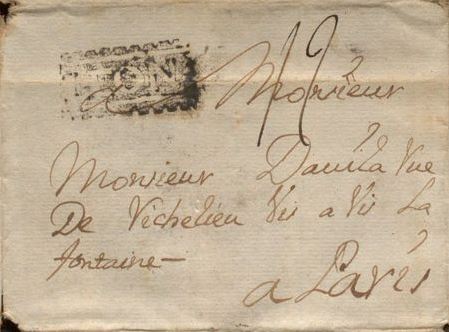 LYON
12
a Monsieur
Monsieur Davila Rue
De Richelieu Vis a Vis La
fontaine
a Paris